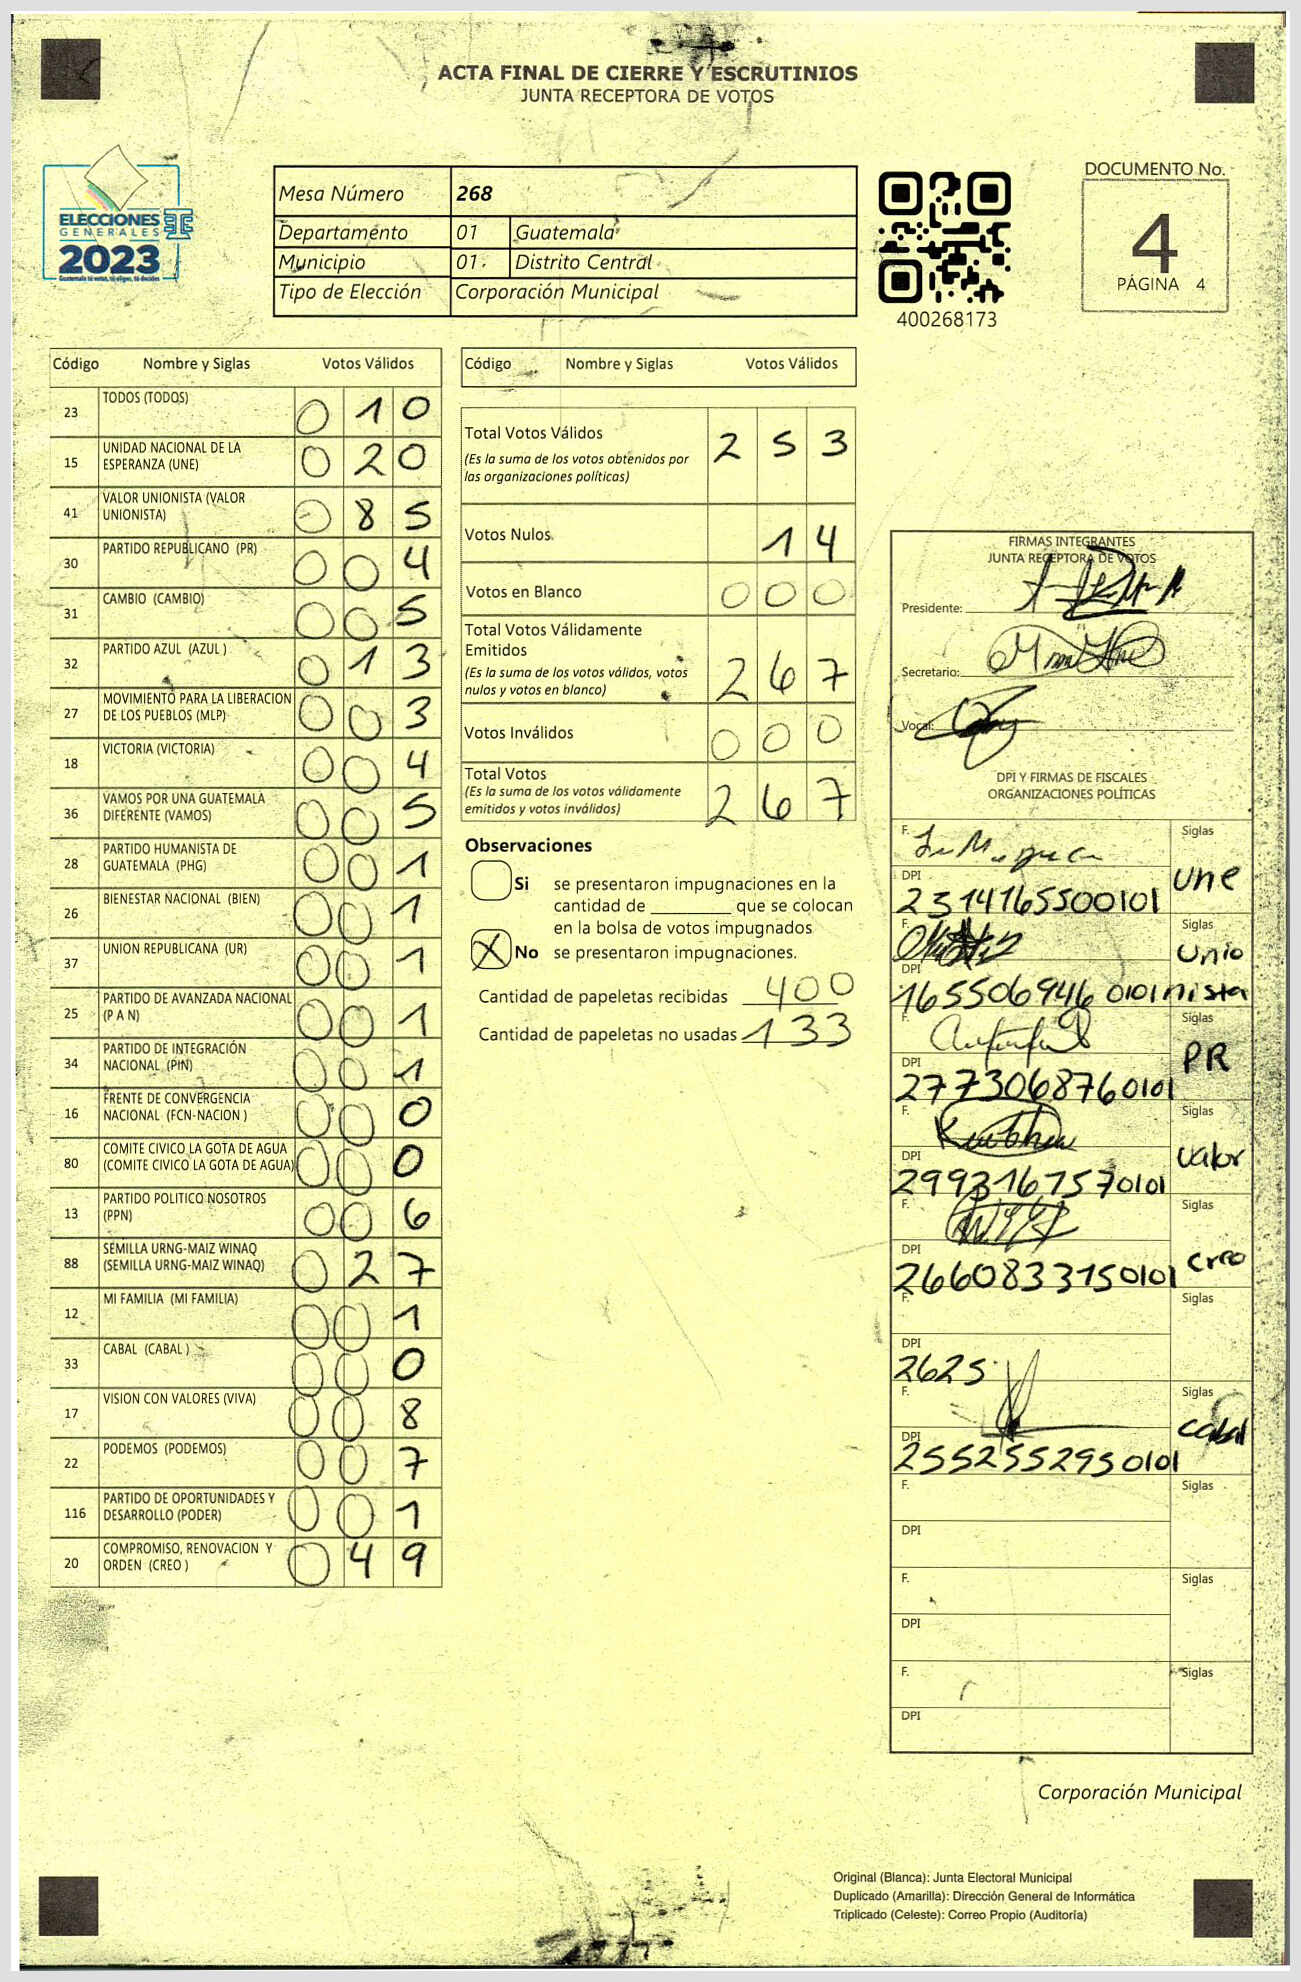 ACTA FINAL DE CIERRE Y ESCRUTINIOS
JUNTA RECEPTORA DE VOTOS
ELECCIONES
GENERALES
2023
Guatemala tú votas, tú eliges, tú decides
Mesa Número 268
Departamento 01 Guatemala
Municipio 01 Distrito Central
Tipo de Elección Corporación Municipal
400268173
DOCUMENTO No.
4
PÁGINA 4
Código Nombre y Siglas Votos Válidos
23 TODOS (TODOS) 0 1 0
15 UNIDAD NACIONAL DE LA ESPERANZA (UNE) 0 2 0
41 VALOR UNIONISTA (VALOR UNIONISTA) 0 8 5
30 PARTIDO REPUBLICANO (PR) 0 0 4
31 CAMBIO (CAMBIO) 0 0 5
32 PARTIDO AZUL (AZUL ) 0 1 3
27 MOVIMIENTO PARA LA LIBERACION DE LOS PUEBLOS (MLP) 0 0 3
18 VICTORIA (VICTORIA) 0 0 4
36 VAMOS POR UNA GUATEMALA DIFERENTE (VAMOS) 0 0 5
28 PARTIDO HUMANISTA DE GUATEMALA (PHG) 0 0 1
26 BIENESTAR NACIONAL (BIEN) 0 0 1
37 UNION REPUBLICANA (UR) 0 0 1
25 PARTIDO DE AVANZADA NACIONAL (P A N) 0 0 1
34 PARTIDO DE INTEGRACIÓN NACIONAL (PIN) 0 0 1
16 FRENTE DE CONVERGENCIA NACIONAL (FCN-NACION ) 0 0 0
80 COMITE CIVICO LA GOTA DE AGUA (COMITE CIVICO LA GOTA DE AGUA) 0 0 0
13 PARTIDO POLITICO NOSOTROS (PPN) 0 0 6
88 SEMILLA URNG-MAIZ WINAQ (SEMILLA URNG-MAIZ WINAQ) 0 2 7
12 MI FAMILIA (MI FAMILIA) 0 0 1
33 CABAL (CABAL ) 0 0 0
17 VISION CON VALORES (VIVA) 0 0 8
22 PODEMOS (PODEMOS) 0 0 7
116 PARTIDO DE OPORTUNIDADES Y DESARROLLO (PODER) 0 0 1
20 COMPROMISO, RENOVACION Y ORDEN (CREO ) 0 4 9
Código Nombre y Siglas Votos Válidos
Total Votos Válidos 2 5 3
(Es la suma de los votos obtenidos por
las organizaciones políticas)
Votos Nulos 1 4
Votos en Blanco 0 0 0
Total Votos Válidamente
Emitidos 2 6 7
(Es la suma de los votos válidos, votos
nulos y votos en blanco)
Votos Inválidos 0 0 0
Total Votos 2 6 7
(Es la suma de los votos válidamente
emitidos y votos inválidos)
Observaciones
Si se presentaron impugnaciones en la
cantidad de ________ que se colocan
en la bolsa de votos impugnados
X No se presentaron impugnaciones.
Cantidad de papeletas recibidas 400
Cantidad de papeletas no usadas 133
FIRMAS INTEGRANTES
JUNTA RECEPTORA DE VOTOS
Presidente:
Secretario:
Vocal:
DPI Y FIRMAS DE FISCALES
ORGANIZACIONES POLÍTICAS
F. Siglas
DPI une
2314165500101
F. Siglas
DPI Unio
165506946 0101 nista
F. Siglas
DPI PR
2773068760101
F. Siglas
DPI valor
2993167570101
F. Siglas
DPI creo
2660833150101
F. Siglas
DPI
2625
F. Siglas
DPI cabal
2552552950101
F. Siglas
DPI
F. Siglas
DPI
F. Siglas
DPI
Corporación Municipal
Original (Blanca): Junta Electoral Municipal
Duplicado (Amarilla): Dirección General de Informática
Triplicado (Celeste): Correo Propio (Auditoría)